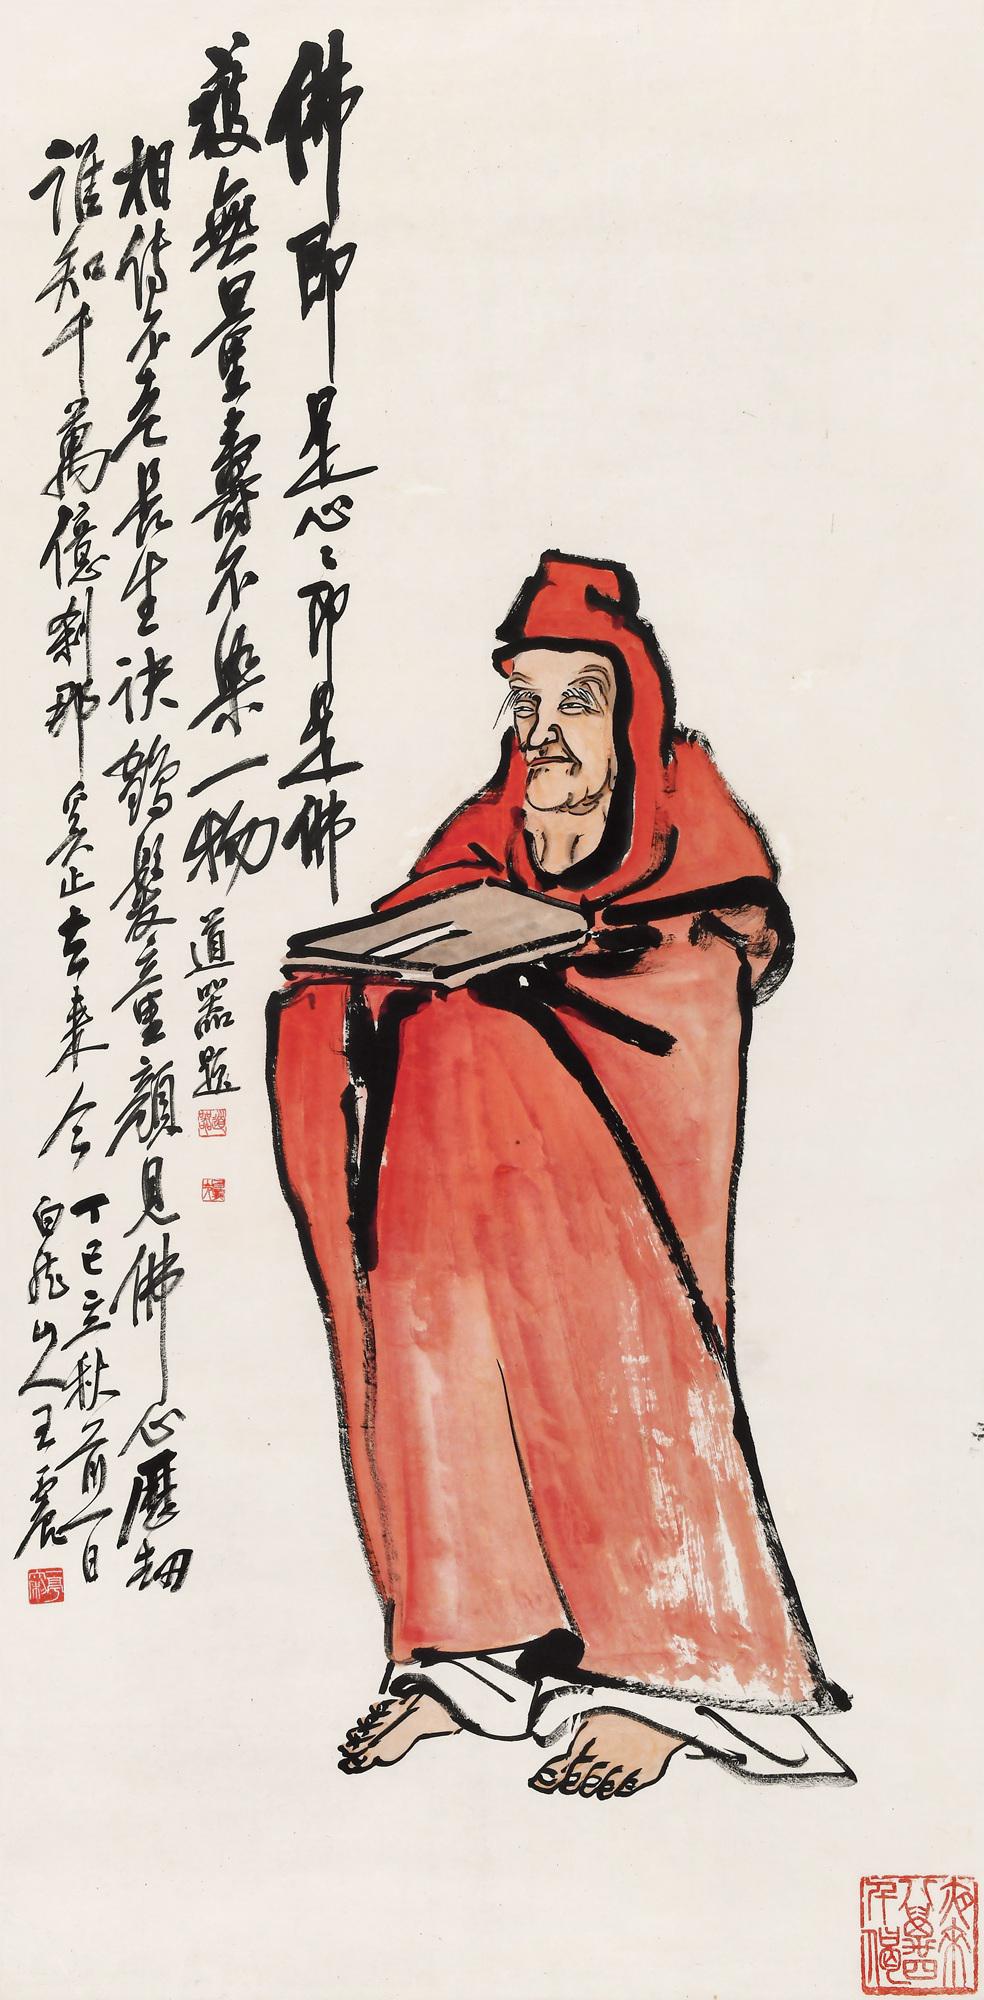 佛即是心心即是佛
護無量壽不染一物
道器題
道器
相傳不老長生訣鶴髮童顏見佛心歷劫
誰知千萬億剎那奚止去來今
丁巳立秋前一日
白龍山人王震
一亭
夜來八萬四千偈